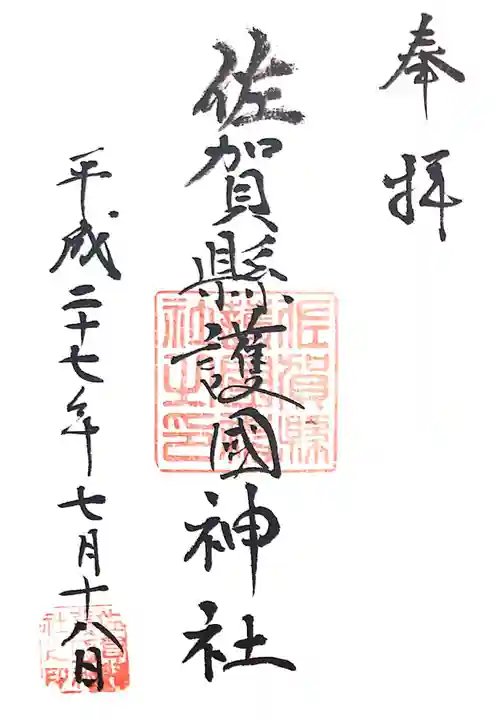 奉拝
佐賀縣護國神社
平成二十七年七月十八日
佐賀縣
護國神
社之印